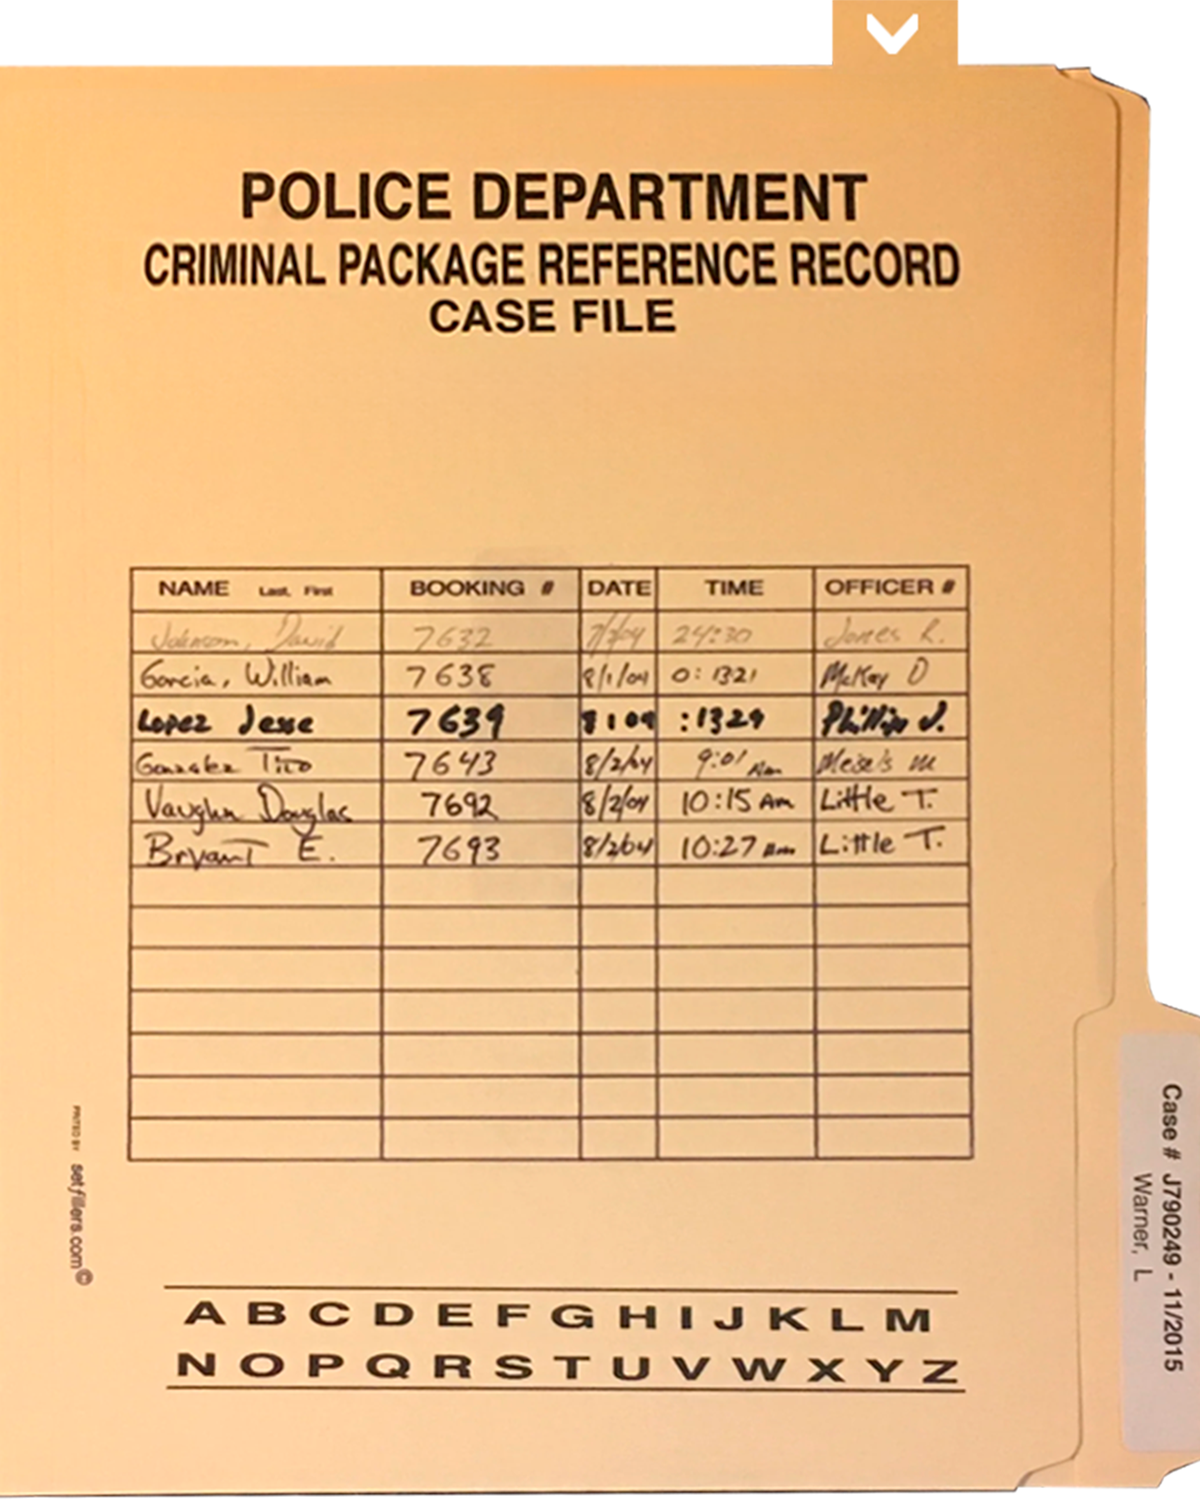 POLICE DEPARTMENT
CRIMINAL PACKAGE REFERENCE RECORD
CASE FILE
NAME Last, First BOOKING # DATE TIME OFFICER #
Johnson, David 7632 24:30 Jones R.
Garcia, William 7638 8/1/04 0:1321 McKay D
Lopez Jesse 7639 8 1 04 :1329 Phillips J.
Gonzalez Tito 7643 8/2/04 9:01 Am Meisels M
Vaughn Douglas 7692 8/2/04 10:15 Am Little T.
Bryant E. 7693 8/2/04 10:27 Am Little T.
PRINTED BY setfillers.com©
A B C D E F G H I J K L M
N O P Q R S T U V W X Y Z
Case # J790249 - 11/2015
Warner, L